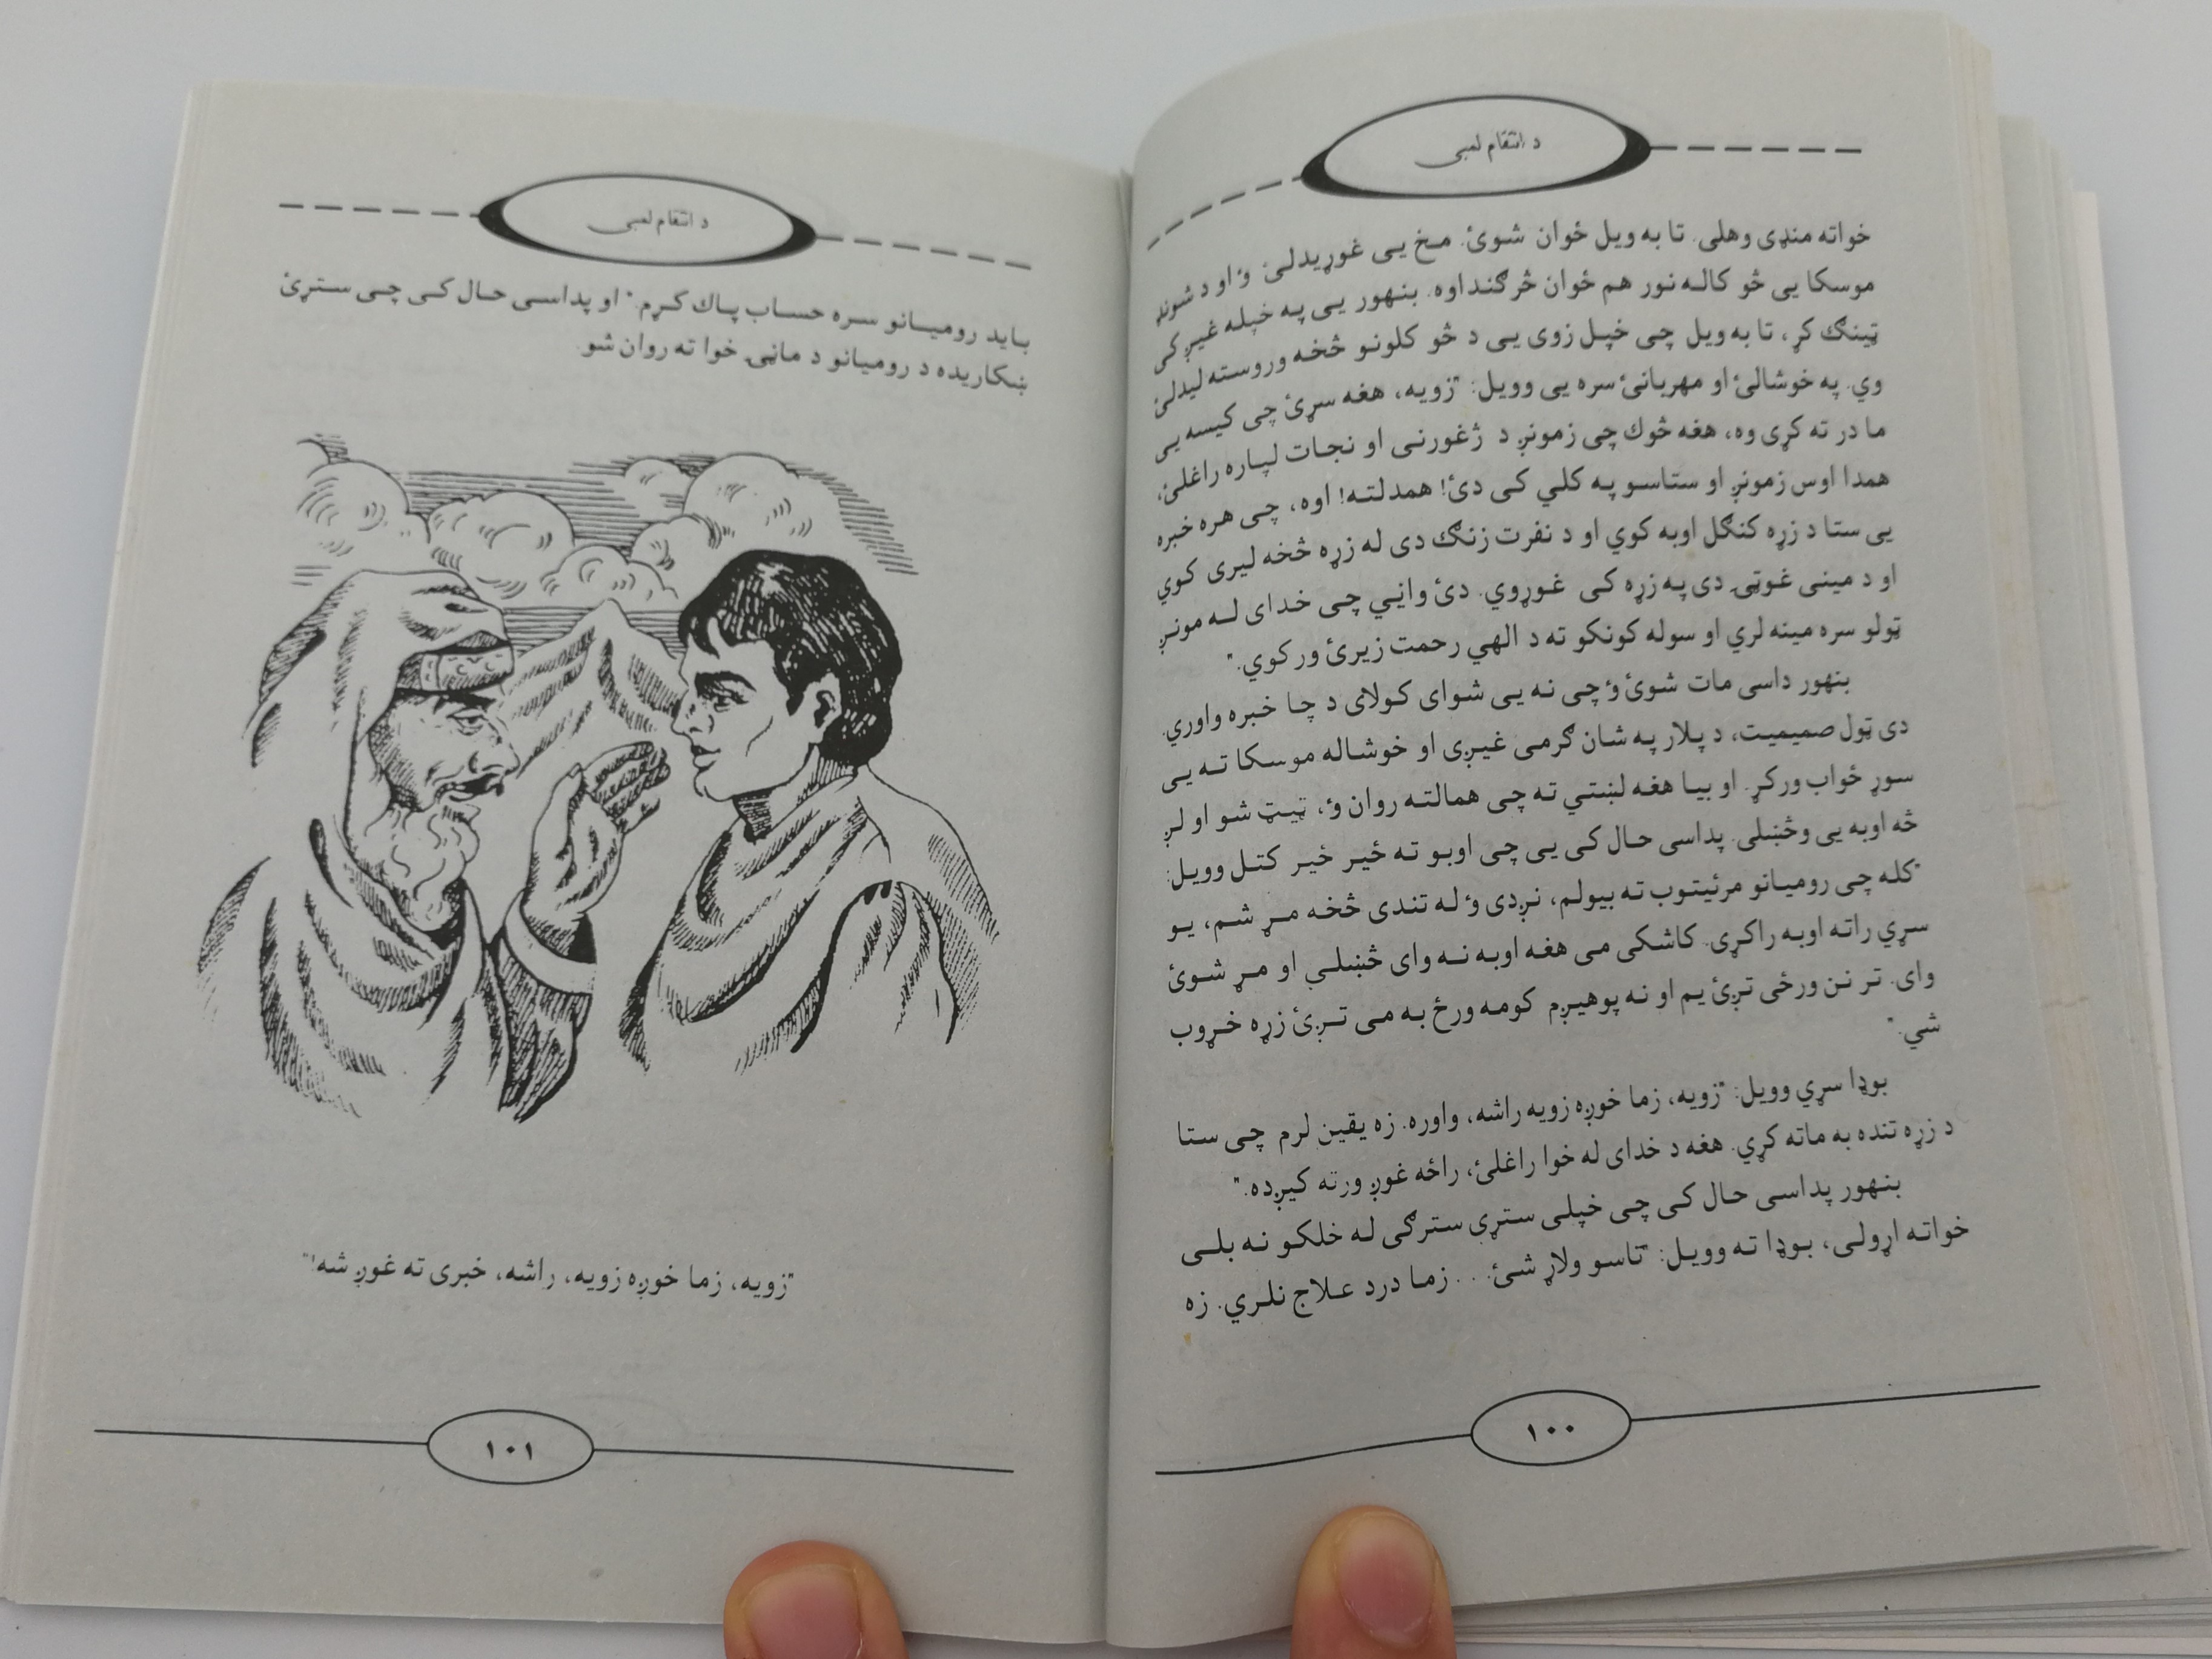 د انتقام لمبی
خواته منډی وهلی. تا به ویل ځوان شوئ. مـخ یـی غوړیدلـئ ؤ او د شونډو
موسکا یی څو کالـه نور هم ځوان څرګنداوه. بنـهور یـی پـه خپله غیږ کی
ټینګ کړ، تا به ویل چی خپـل زوی یـی د څو کلونـو څخـه وروسته لیدلئ
وي. په خوشالئ او مهربانئ سره یی وویل: "زویه، هغه سړئ چی کیسه یی
ما در ته کړی وه، هغه څوك چی زمونږ د ژغورنـی او نجـات لپـاره راغلئ،
همدا اوس زمونږ او ستاسـو پـه کلي کـی دئ! همدلتـه! اوه، چـی هره خبره
یی ستا د زړه کنګل اوبه کوي او د نفرت زنګ دی له زړه څخه لیری کوي
او د مینی غـوټی دی پـه زړه کـی غـوړوي. دئ وایـي چـی خـدای لـه مونـږ
ټولو سره مینه لري او سوله کونکو ته د الهي رحمت زیرئ ورکوي."
بنهور داسی مات شوئ ؤ چی نـه یـی شـوای کـولای د چـا خـبره واوري.
دی ټول صمیمیت، د پـلار پـه شـان ګرمـی غـیږی او خوشـاله موسـکا تـه یـی
سوړ ځواب ورکړ. او بیـا هغـه لښتي تـه چی همالتـه روان ؤ، ټیـټ شـو او لـږ
څه اوبه یی وڅښلی. پداسی حـال کی یـی چی اوبـو تـه ځیـر ځیـر کتـل وویـل:
"کلـه چی رومیـانو مرئیتـوب تـه بیولم، نږدی ؤ لـه تنـدی څخـه مـړ شـم، یـو
سړي راتـه اوبـه راکړی. کاشکی مـی هغـه اوبـه نـه وای څښلـی او مـړ شـوئ
وای. تـر نـن ورځـی تـږئ یـم او نـه پوهیـږم کومـه ورځ بـه مـی تـږئ زړه خـړوب
شي."
بوډا سړي وویل: "زویه، زما خوږه زویه راشه، واوره. زه یقین لرم چـی ستـا
د زړه تنده به ماته کړي. هغه د خدای له خوا راغلئ، راځه غوږ ورته کیږده."
بنهور پداسی حـال کـی چـی خپلـی ستـړی سترګـی لـه خلکـو نـه بلـی
خواتـه اړولـی، بـوډا تـه وویـل: "تاسـو ولاړ شـئ. . . زمـا درد عـلاج نلـري. زه
۱۰۰
د انتقام لمبی
بـایـد رومیـانو سـره حسـاب پـاك کـړم." او پداسـی حـال کـی چـی سـتړئ
ښکاریده د رومیانو د مانۍ خوا ته روان شو.
"زویه، زما خوږه زویه، راشه، خبری ته غوږ شه!"
۱۰۱